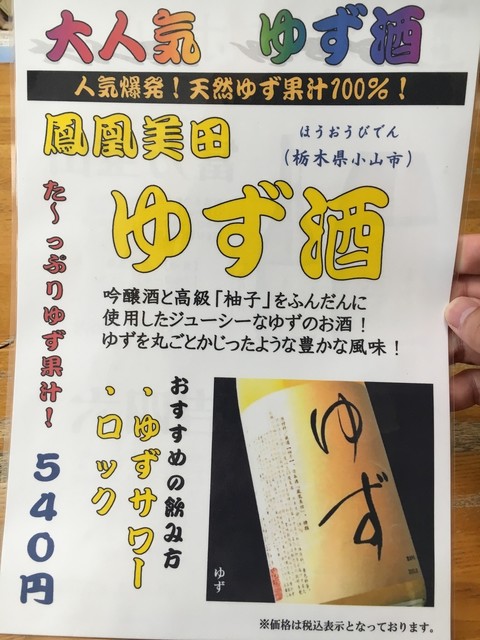 大人気　ゆず酒
人気爆発！天然ゆず果汁100%！
鳳凰美田
ほうおうびでん
（栃木県小山市）
ゆず酒
た～っぷりゆず果汁！
540円
吟醸酒と高級「柚子」をふんだんに
使用したジューシーなゆずのお酒！
ゆずを丸ごとかじったような豊かな風味！
おすすめの飲み方
・ゆずサワー
・ロック
ゆず
ゆず
※価格は税込表示となっております。